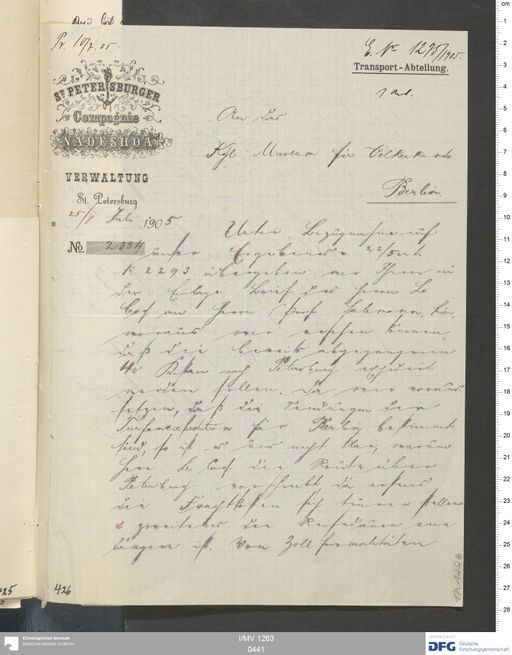 Pr. 10/7. 05
E. № 1295/1905.
Transport-Abteilung.
1 Anl.
ST. PETERSBURGER
Compagnie
NADESHDA
VERWALTUNG
St. Petersburg
25/ Juli 1905.
No. 2334
An das
Kgl. Museum für Völkerkunde
Berlin
Unter Bezugnahme auf
unser Ergebenes v. 22/5
№ 2293 übergeben wir Ihnen in
der Einlage Brief des Herrn Le
Coq an Herrn Prof.
woraus wir ersehen können,
daß die bereits abgegangenen
40 Kisten nach Petersburg
werden sollen. Da wir voraus
setzen, daß die Sendungen der
Turfanexpedition für Berlin bestimmt
sind, so ist es uns nicht klar, warum
Herr Le Coq die Route über
Petersburg vorschreibt, da erstens
die Frachtkosten sich teurer stellen
& zweitens die Reisedauer eine
längere ist. Von Zollformalitäten
426
425
TA 1426
I/MV 1263
0441
Ethnologisches Museum
Staatliche Museen zu Berlin
DFG Deutsche
Forschungsgemeinschaft